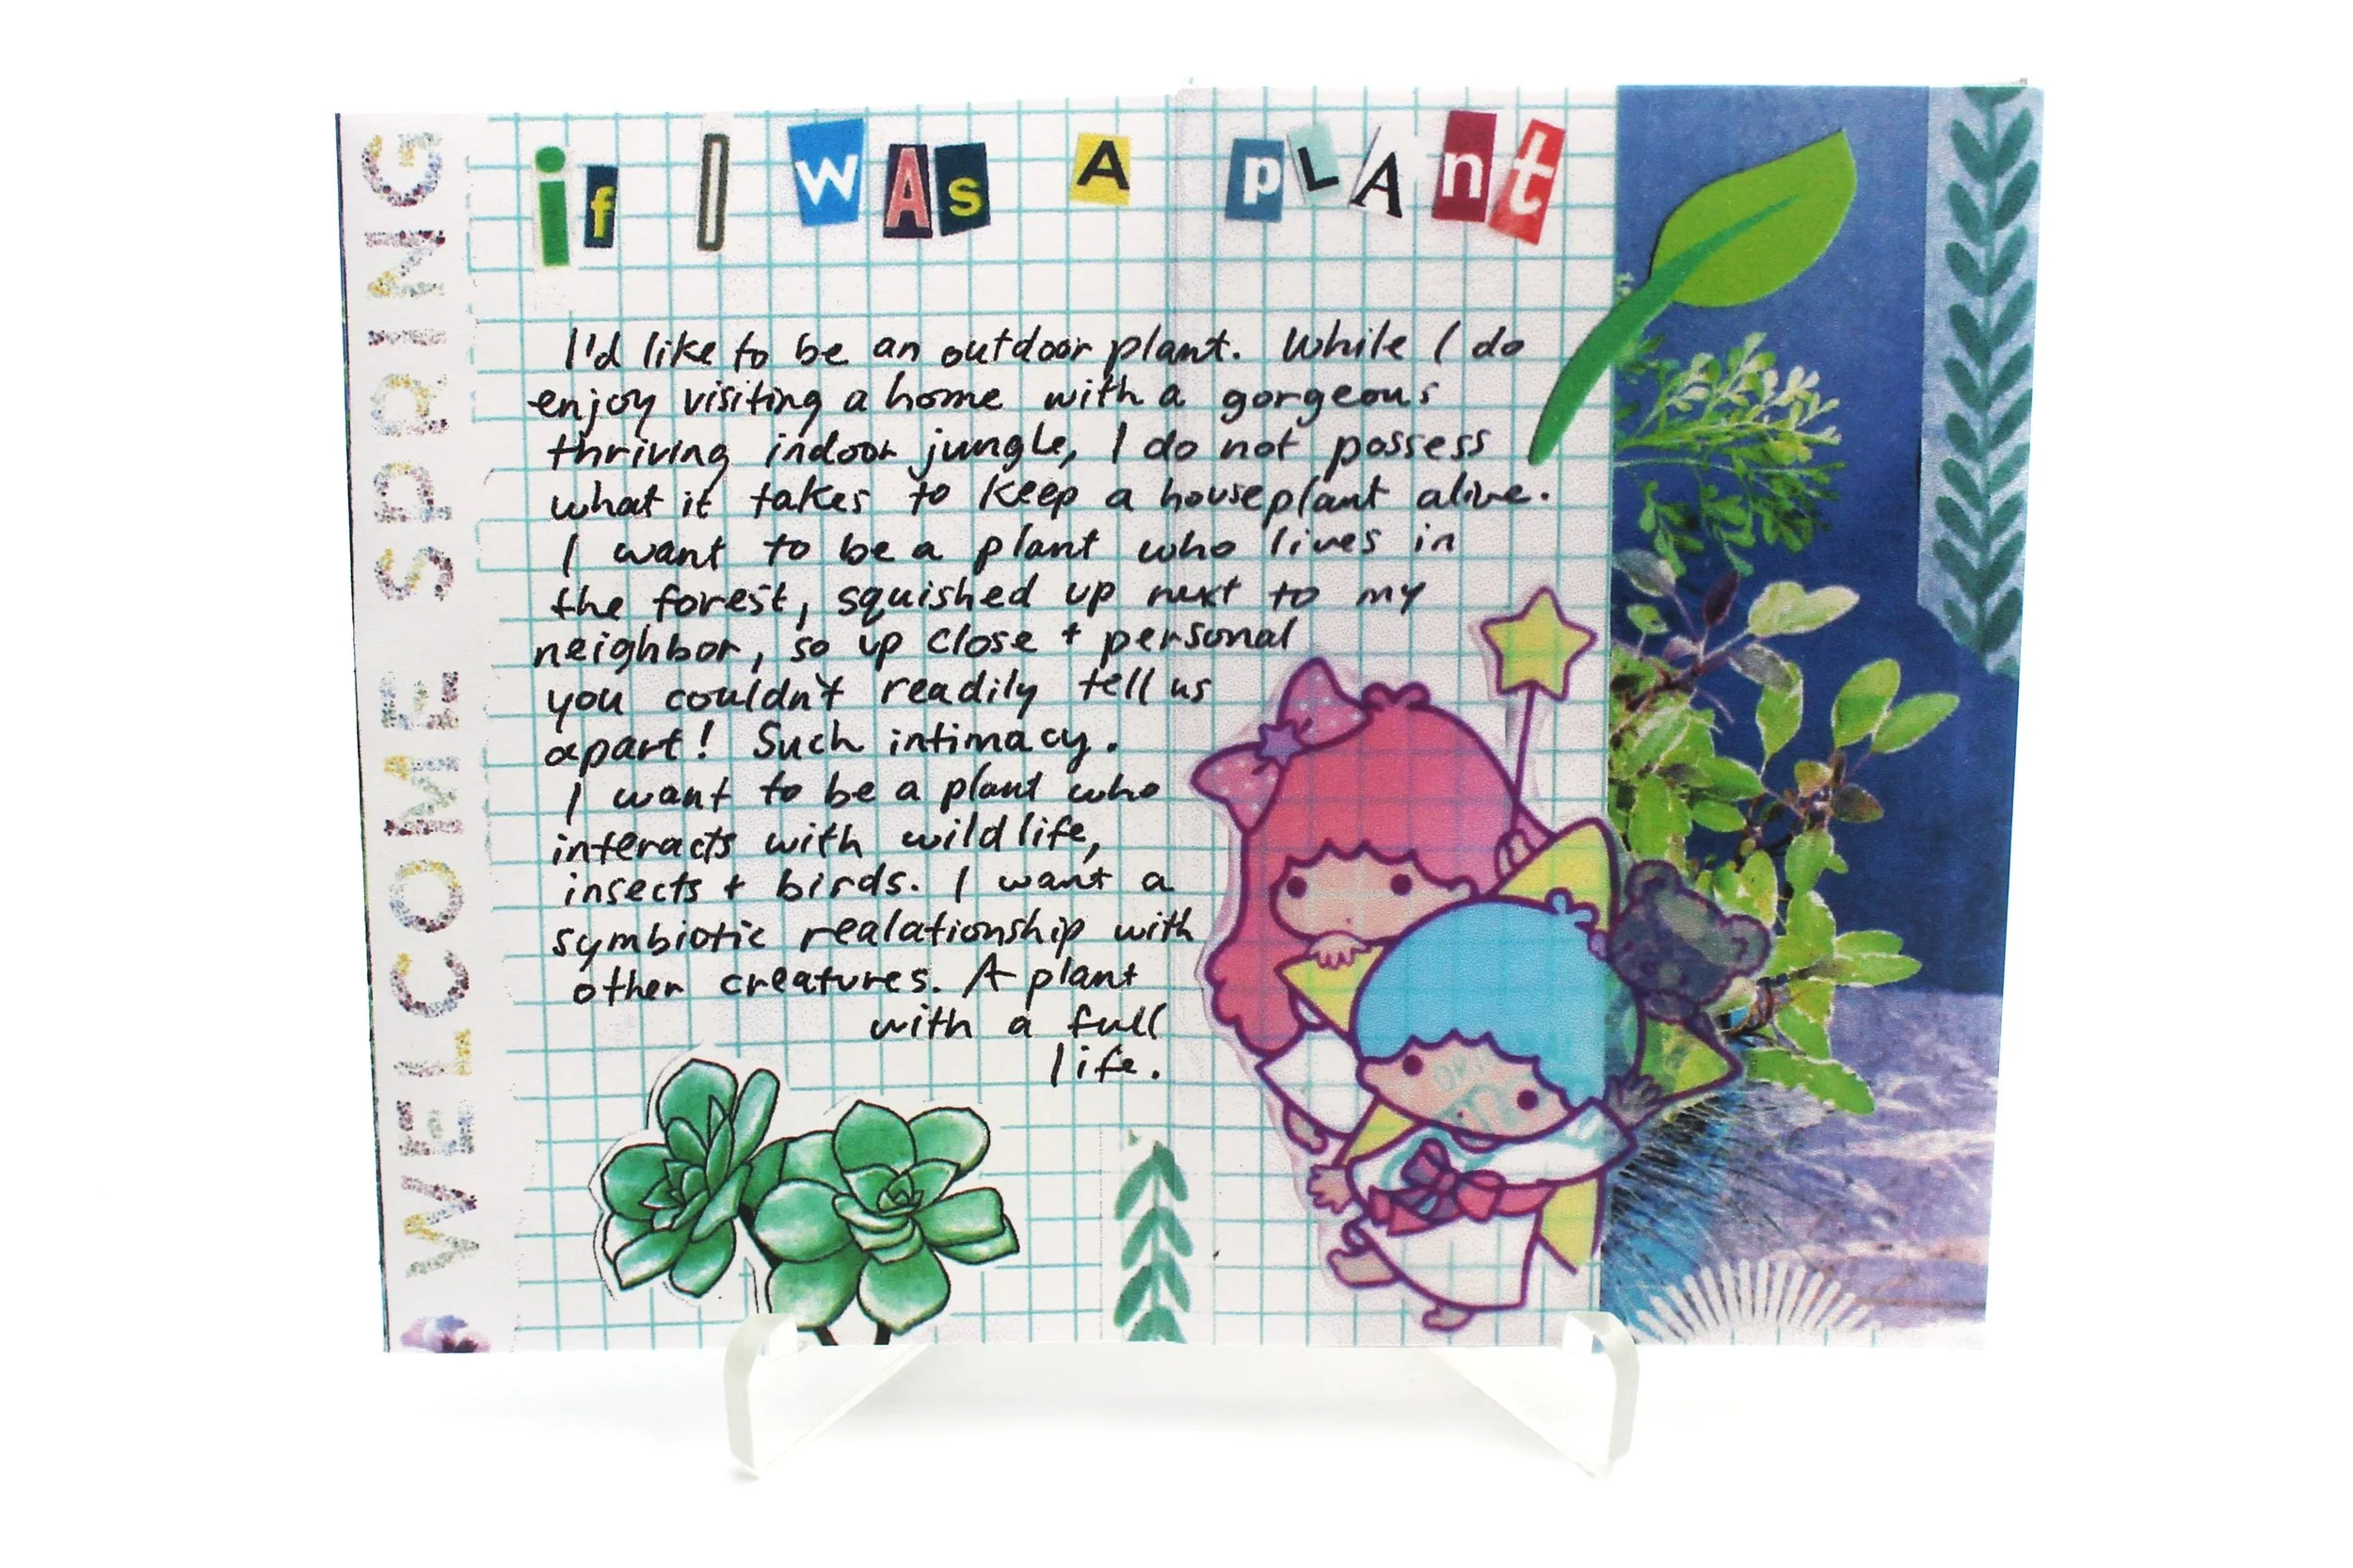 WELCOME SPRING
if I wAs A pLAnt
I'd like to be an outdoor plant. While I do
enjoy visiting a home with a gorgeous
thriving indoor jungle, I do not possess
what it takes to keep a houseplant alive.
I want to be a plant who lives in
the forest, squished up next to my
neighbor, so up close + personal
you couldn't readily tell us
apart! Such intimacy.
I want to be a plant who
interacts with wildlife,
insects + birds. I want a
symbiotic realationship with
other creatures. A plant
with a full
life.